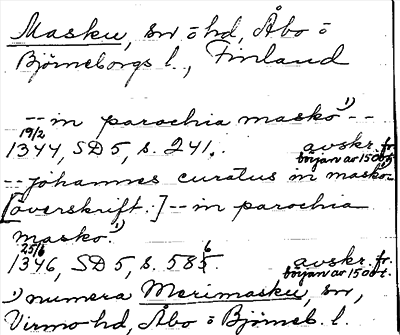 Masku, sn o hd, Åbo o
Björneborgs l., Finland
--in parochia masko¹⁾--
19/2
1344, SD 5, s. 241. avskr. fr.
början av 1500t.
--Johannes curatus in masko¹⁾
[överskrift.] -- in parochia
masko.¹⁾
25/6
1346, SD 5, s. 585. avskr. fr.
början av 1500t.
¹⁾ numera Merimasku, sn,
Virmo hd, Åbo o Björneb. l.